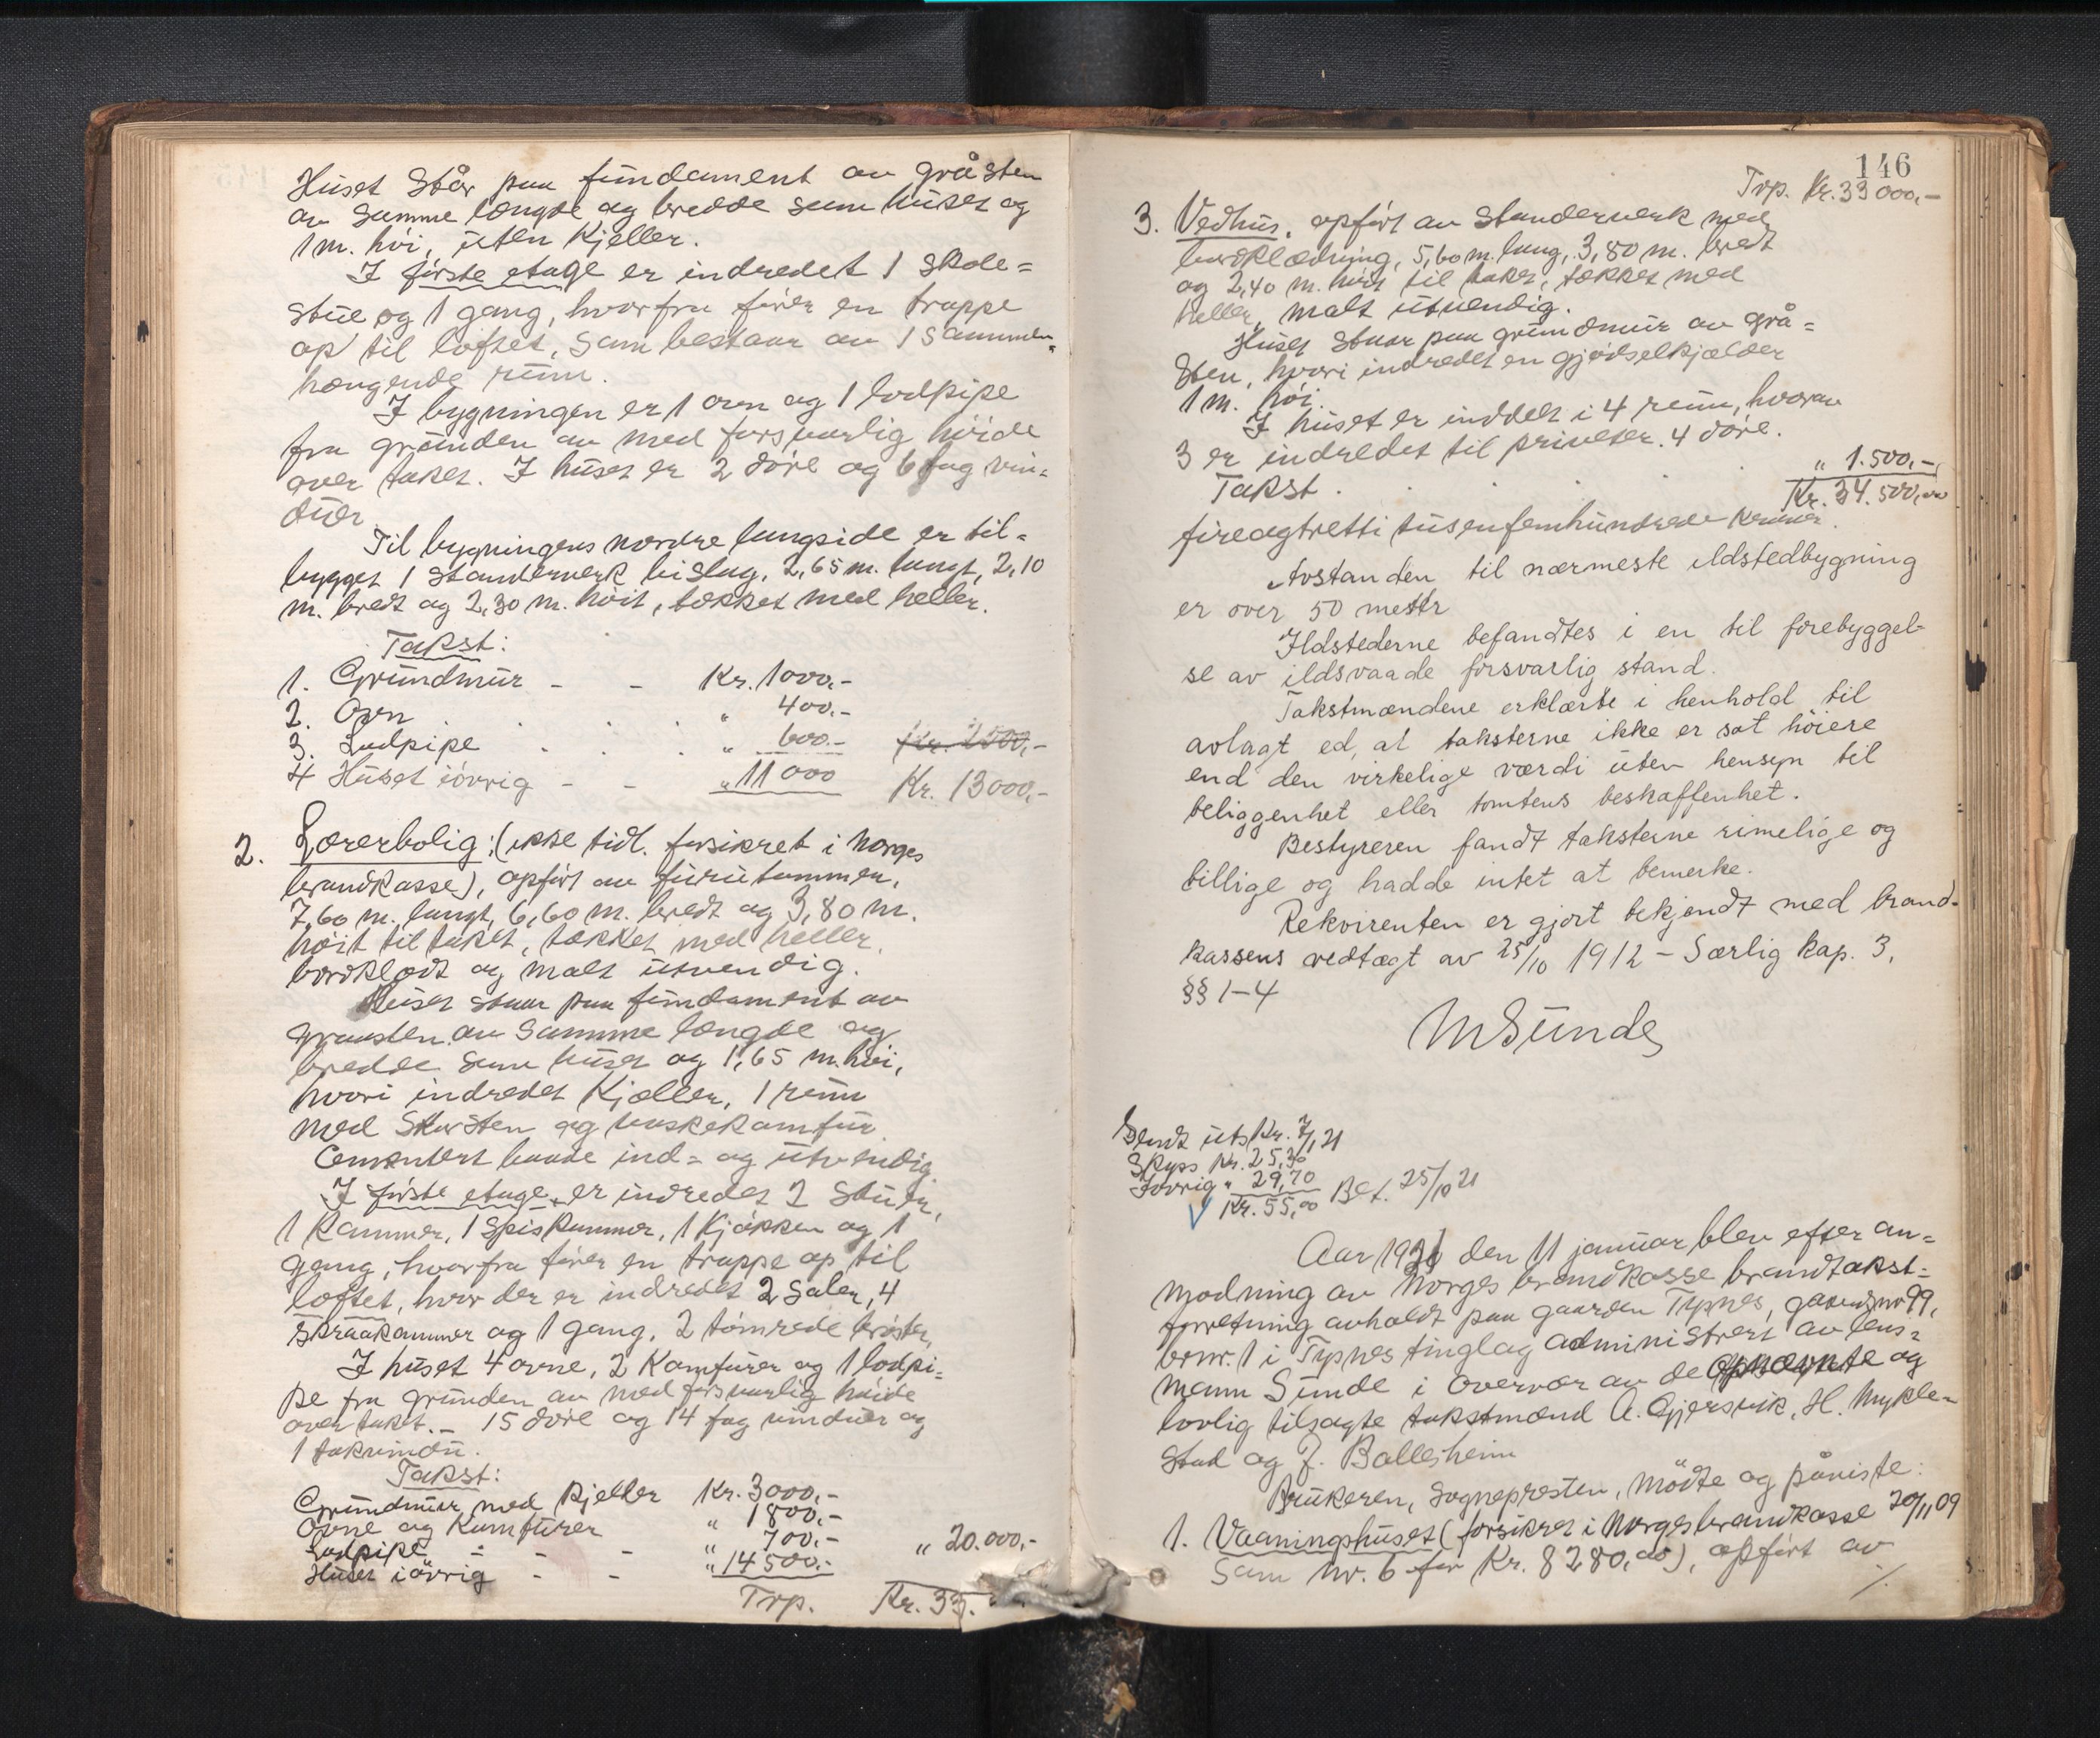 Huset Står paa fundament av gråsten
av samme længde og bredde som huset og
1 m. höi, uten Kjeller.
I förste etage er indredet 1 Skole=
stue og 1 gang, hvorfra förer en trappe
op til loftet, som bestaar av 1 sammen=
hængende rum.
I bygningen er 1 ovn og 1 lodpipe
fra grunden av med forsvarlig höide
over taket. I huset er 2 döre og 6 fag vin=
duer
Til bygningens nordre langside er til=
bygget 1 Standerverk bislag, 2,65 m. langt, 2,10
m. bredt og 2,30 m. höit, tækket med heller.
Takst:
1. Grundmur - - Kr. 1000,-
2. Ovn . . . " 400,-
3. Lodpipe . . . " 600.- Kr. 2000,-
4 Huset iövrig - - " 11000 Kr. 13000,-
2. Lærerbolig: (ikke tidl. forsikret i Norges
brandkasse), opfört av furutömmer,
7,60 m. langt, 6,60 m. bredt og 3,80 m.
höit til taket, tækket med heller,
bordklædt og malt utvendig.
Huset staar paa fundament av
graasten av samme længde og
bredde som huset og 1,65 m. höi,
hvori indredet Kjeller, 1 rum
med Skorsten og vaskekomfur.
Cementert baade ind= og utvendig.
I förste etage er indredet 2 Stuer,
1 Kammer, 1 Spiskammer, 1 Kjökken og 1
gang, hvorfra förer en trappe op til
loftet, hvor der er indredet 2 Saler, 4
Skraakammer og 1 gang. 2 tömrede bröster,
I huset 4 ovne, 2 Komfurer og 1 lodpi=
pe fra grunden av med forsvarlig höide
over taket. - 15 döre og 14 fag vinduer og
1 takvindu.
Takst:
Grundmur med Kjeller Kr. 3000,-
Ovne og Komfurer " 1800,-
Lodpipe - - " 700,- " 20.000,-
Huset iövrig - - " 14500.-
Trp. Kr. 33.
146
Trp. Kr. 33000,-
3. Vedhus, opfört av Standerverk med
bordklædning, 5,60 m. lang, 3,80 m. bredt
og 2,40 m. höit til taket, tækket med
heller, malt utvendig.
Huset staar paa grundmur av grå=
sten, hvori indredet en gjödselkjælder
1 m. höi.
I huset er inddelt i 4 rum, hvorav
3 er indredet til priveter. 4 döre.
Takst . . . . " 1.500,-
Kr. 34.500,00
fireogtretti tusenfemhundrede Kroner.
Avstanden til nærmeste ildstedbygning
er over 50 mettr
Ildstederne befandtes i en til forebyggel-
se av ildsvaade forsvarlig stand.
Takstmændene erklærte i henhold til
avlagt ed, at taksterne ikke er sat höiere
end den virkelige værdi uten hensyn til
beliggenhet eller tomtens beskaffenhet.
Bestyreren fandt taksterne rimelige og
billige og hadde intet at bemerke.
Rekvirenten er gjort bekjendt med brand-
kassens vedtægt av 25/10 1912 - Særlig kap. 3,
§§ 1-4
M Sunde
Sendt uts Kr. 7/1 21
Skyss Kr. 25,30
Iövrig " 29,70
Kr. 55,00 Bet. 25/10 21
Aar 1921 den 11 januar blev efter an=
modning av Norges brandkasse brandtakst=
forretning avholdt paa gaarden Tysnes, gaardsnr 99,
brnr. 1 i Tysnes tinglag administrert av lens=
mann Sunde i overvær av de opnævnte og
lovlig tilsagte takstmænd A. Gjersvik, H. Mykle=
stad og J. Ballesheim
Brukeren, Sognepresten, mödte og påviste:
1. Vaaningshuset (forsikret i Norges brandkasse 20/11 09
som Nr. 6 for Kr. 8280,00), opfört av
./.